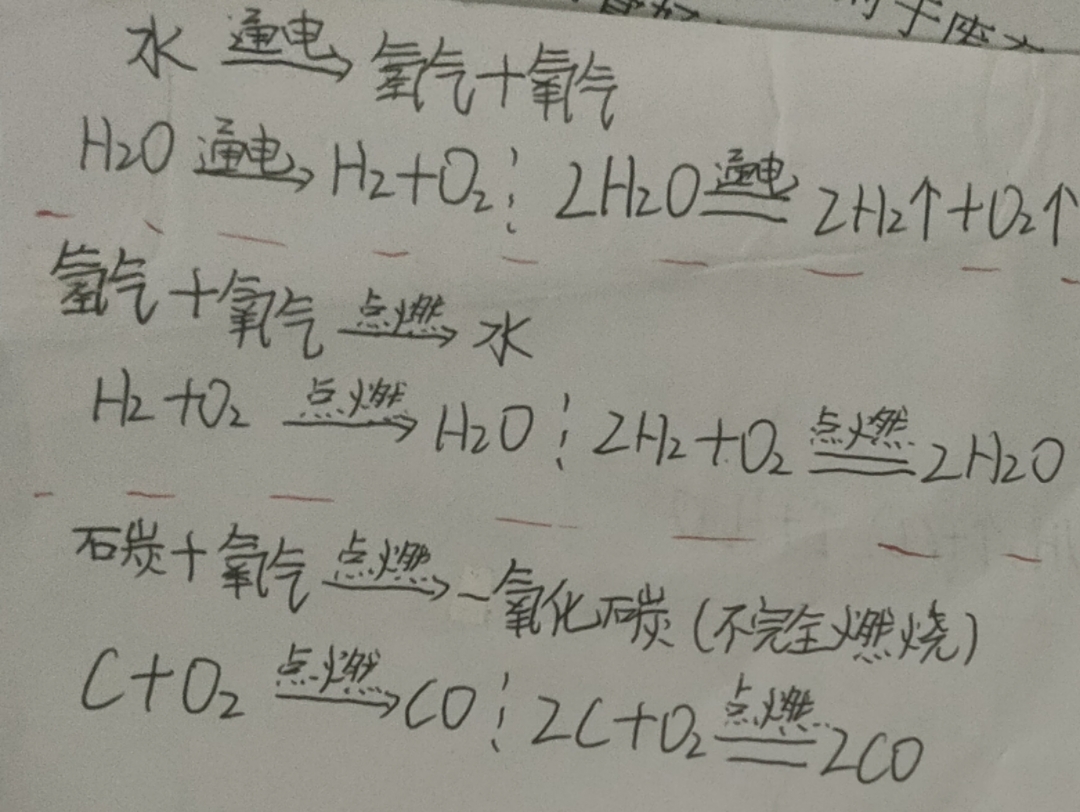 于座
水 通电→ 氢气+氧气
H2O 通电→ H2+O2 ⋮ 2H2O 通电═ 2H2↑+O2↑
氢气+氧气 点燃→ 水
H2+O2 点燃→ H2O ⋮ 2H2+O2 点燃═ 2H2O
石炭+氧气 点燃→ 一氧化碳(不完全燃烧)
C+O2 点燃→ CO ⋮ 2C+O2 点燃═ 2CO